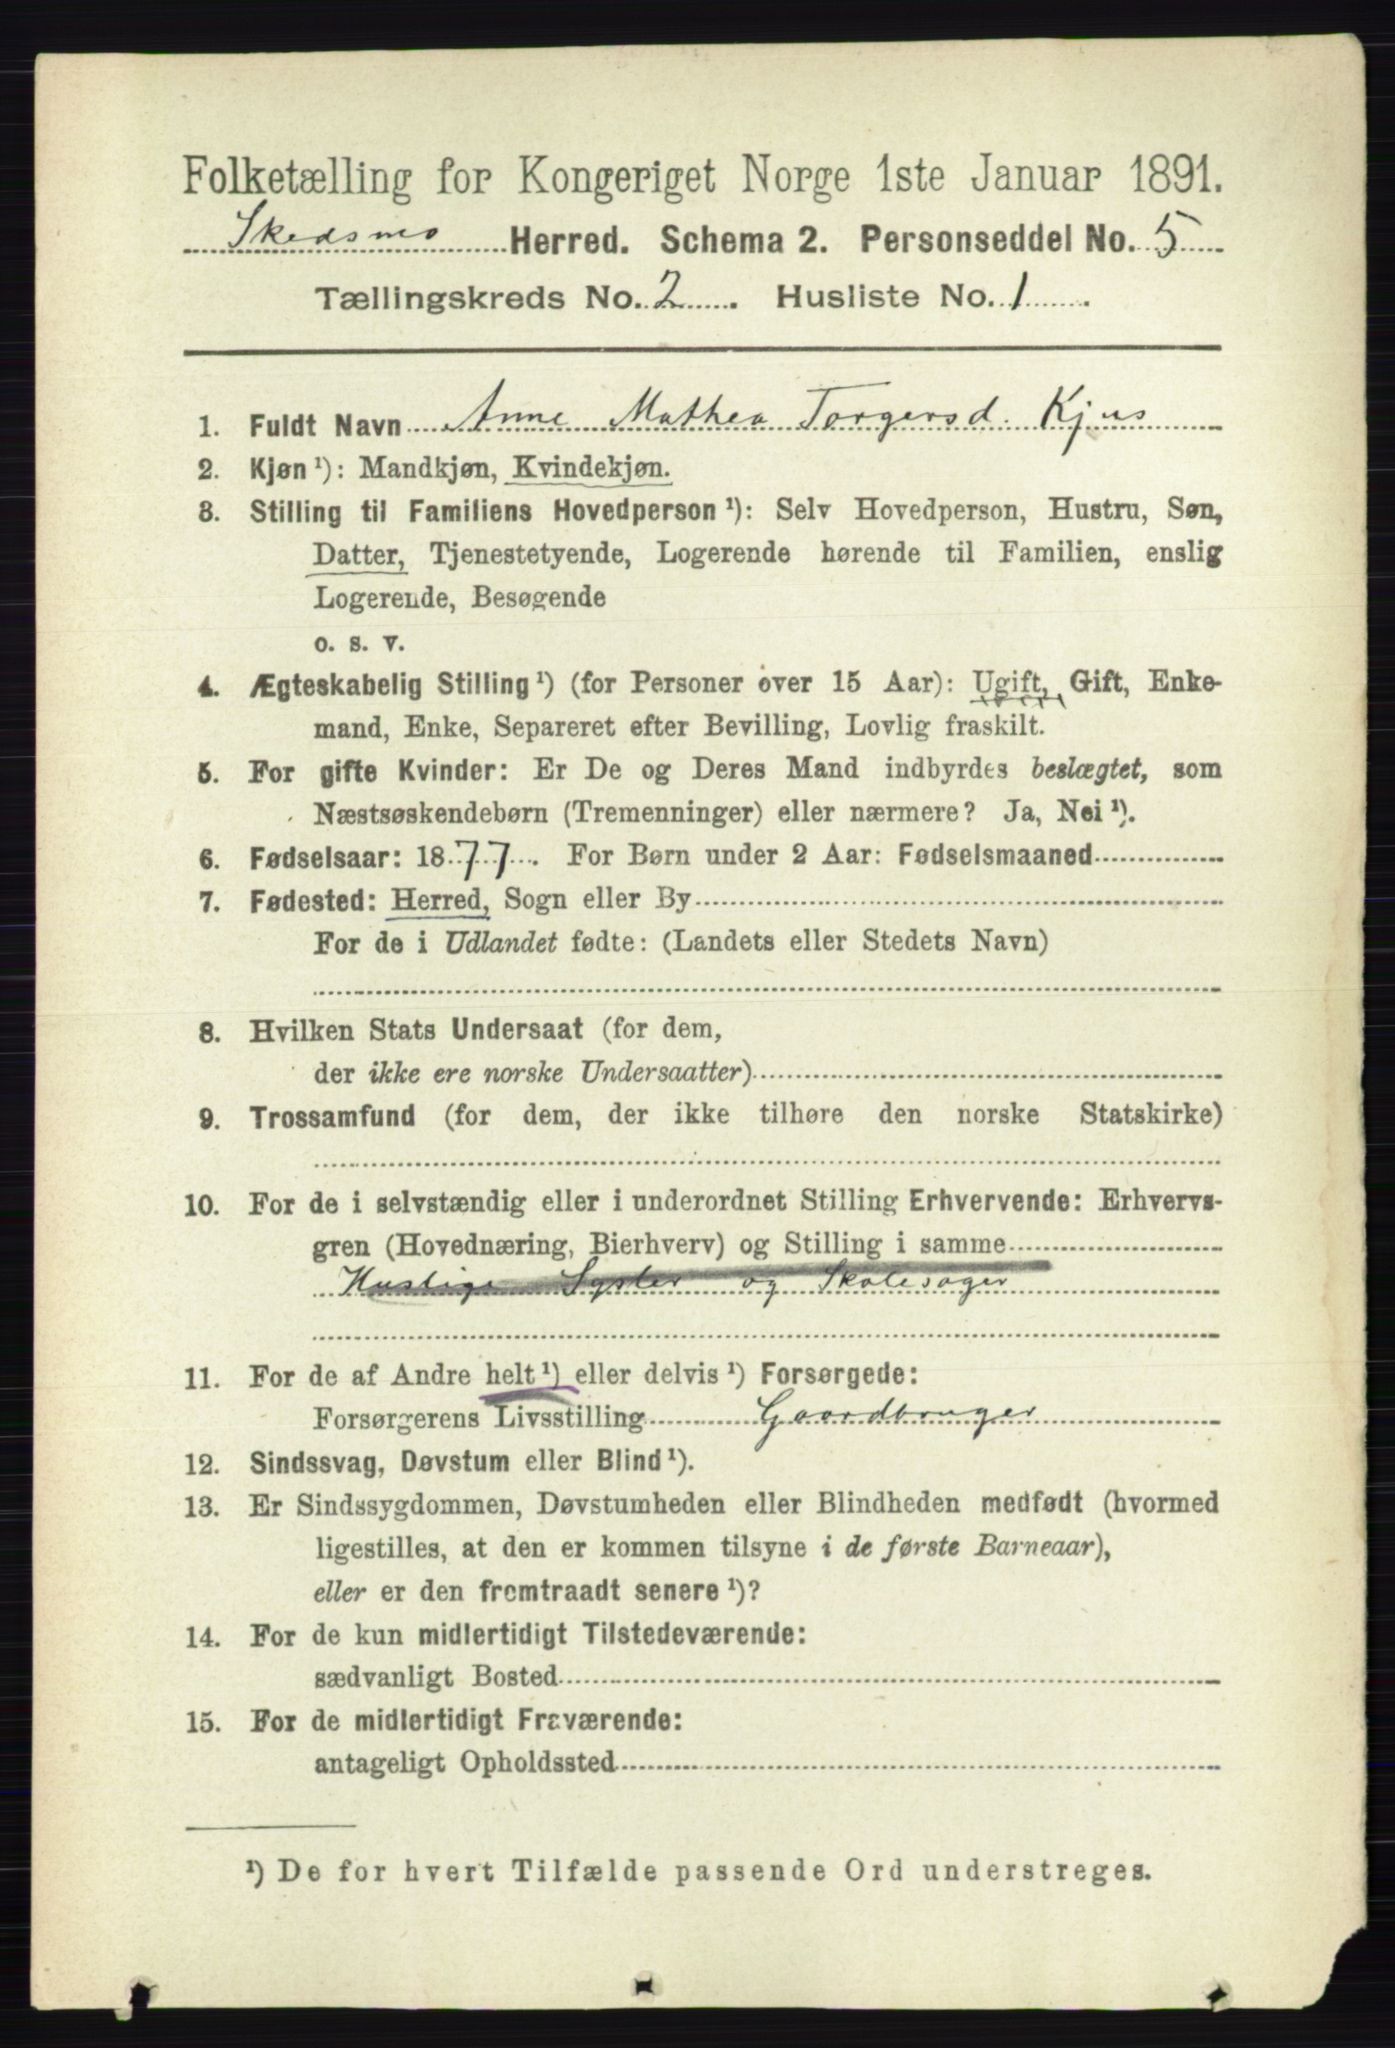 Folketælling for Kongeriget Norge 1ste Januar 1891.
Skedsmo Herred. Schema 2. Personseddel No. 5
Tællingskreds No. 2. Husliste No. 1.
1. Fuldt Navn Anne Mathea Torgersd. Kjus
2. Kjøn ¹): Mandkjøn, Kvindekjøn.
3. Stilling til Familiens Hovedperson ¹): Selv Hovedperson, Hustru, Søn,
Datter, Tjenestetyende, Logerende hørende til Familien, enslig
Logerende, Besøgende
o. s. v.
4. Ægteskabelig Stilling ¹) (for Personer over 15 Aar): Ugift, Gift, Enke-
mand, Enke, Separeret efter Bevilling, Lovlig fraskilt.
5. For gifte Kvinder: Er De og Deres Mand indbyrdes beslægtet, som
Næstsøskendebørn (Tremenninger) eller nærmere? Ja, Nei ¹).
6. Fødselsaar: 1877. For Børn under 2 Aar: Fødselsmaaned
7. Fødested: Herred, Sogn eller By
For de i Udlandet fødte: (Landets eller Stedets Navn)
8. Hvilken Stats Undersaat (for dem,
der ikke ere norske Undersaatter)
9. Trossamfund (for dem, der ikke tilhøre den norske Statskirke)
10. For de i selvstændig eller i underordnet Stilling Erhvervende: Erhvervs-
gren (Hovednæring, Bierhverv) og Stilling i samme
Huslige Sysler og Skolesager
11. For de af Andre helt ¹) eller delvis ¹) Forsørgede:
Forsørgerens Livsstilling Gaardbruger
12. Sindssvag, Døvstum eller Blind ¹).
13. Er Sindssygdommen, Døvstumheden eller Blindheden medfødt (hvormed
ligestilles, at den er kommen tilsyne i de første Barneaar),
eller er den fremtraadt senere ¹)?
14. For de kun midlertidigt Tilstedeværende:
sædvanligt Bosted
15. For de midlertidigt Fraværende:
antageligt Opholdssted
¹) De for hvert Tilfælde passende Ord understreges.